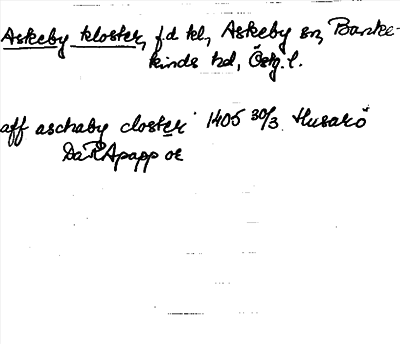 Askeby kloster, f.d kl, Askeby sn, Banke-
kinds hd, Östg. l.
aff aschaby closter 1405 30/3 Husarö
Da RA papp or